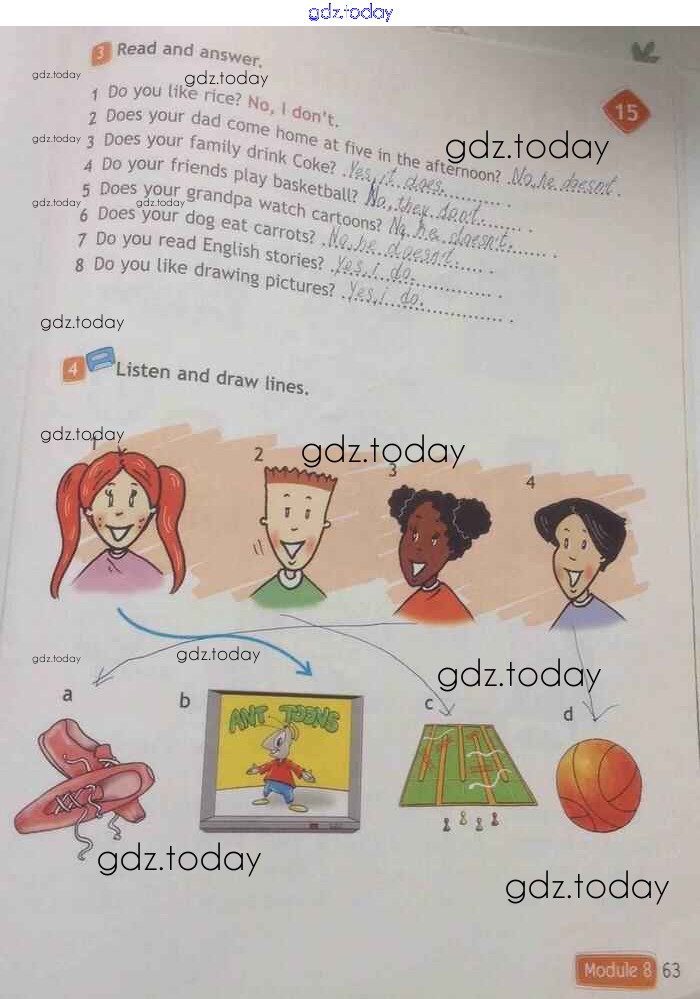 gdz.today
3 Read and answer.
gdz.today
gdz.today
15
1 Do you like rice? No, I don't.
2 Does your dad come home at five in the afternoon? No, he doesn't.
gdz.today
gdz.today
3 Does your family drink Coke? Yes, it does.
4 Do your friends play basketball? No, they don't.
5 Does your grandpa watch cartoons? No, he doesn't.
gdz.today
gdz.today
6 Does your dog eat carrots? No, he doesn't.
7 Do you read English stories? Yes, i do.
8 Do you like drawing pictures? Yes, i do.
gdz.today
4 Listen and draw lines.
gdz.today
gdz.today
1
2
3
4
gdz.today
gdz.today
gdz.today
a
b
c
d
ANT TOONS
gdz.today
gdz.today
Module 8 63